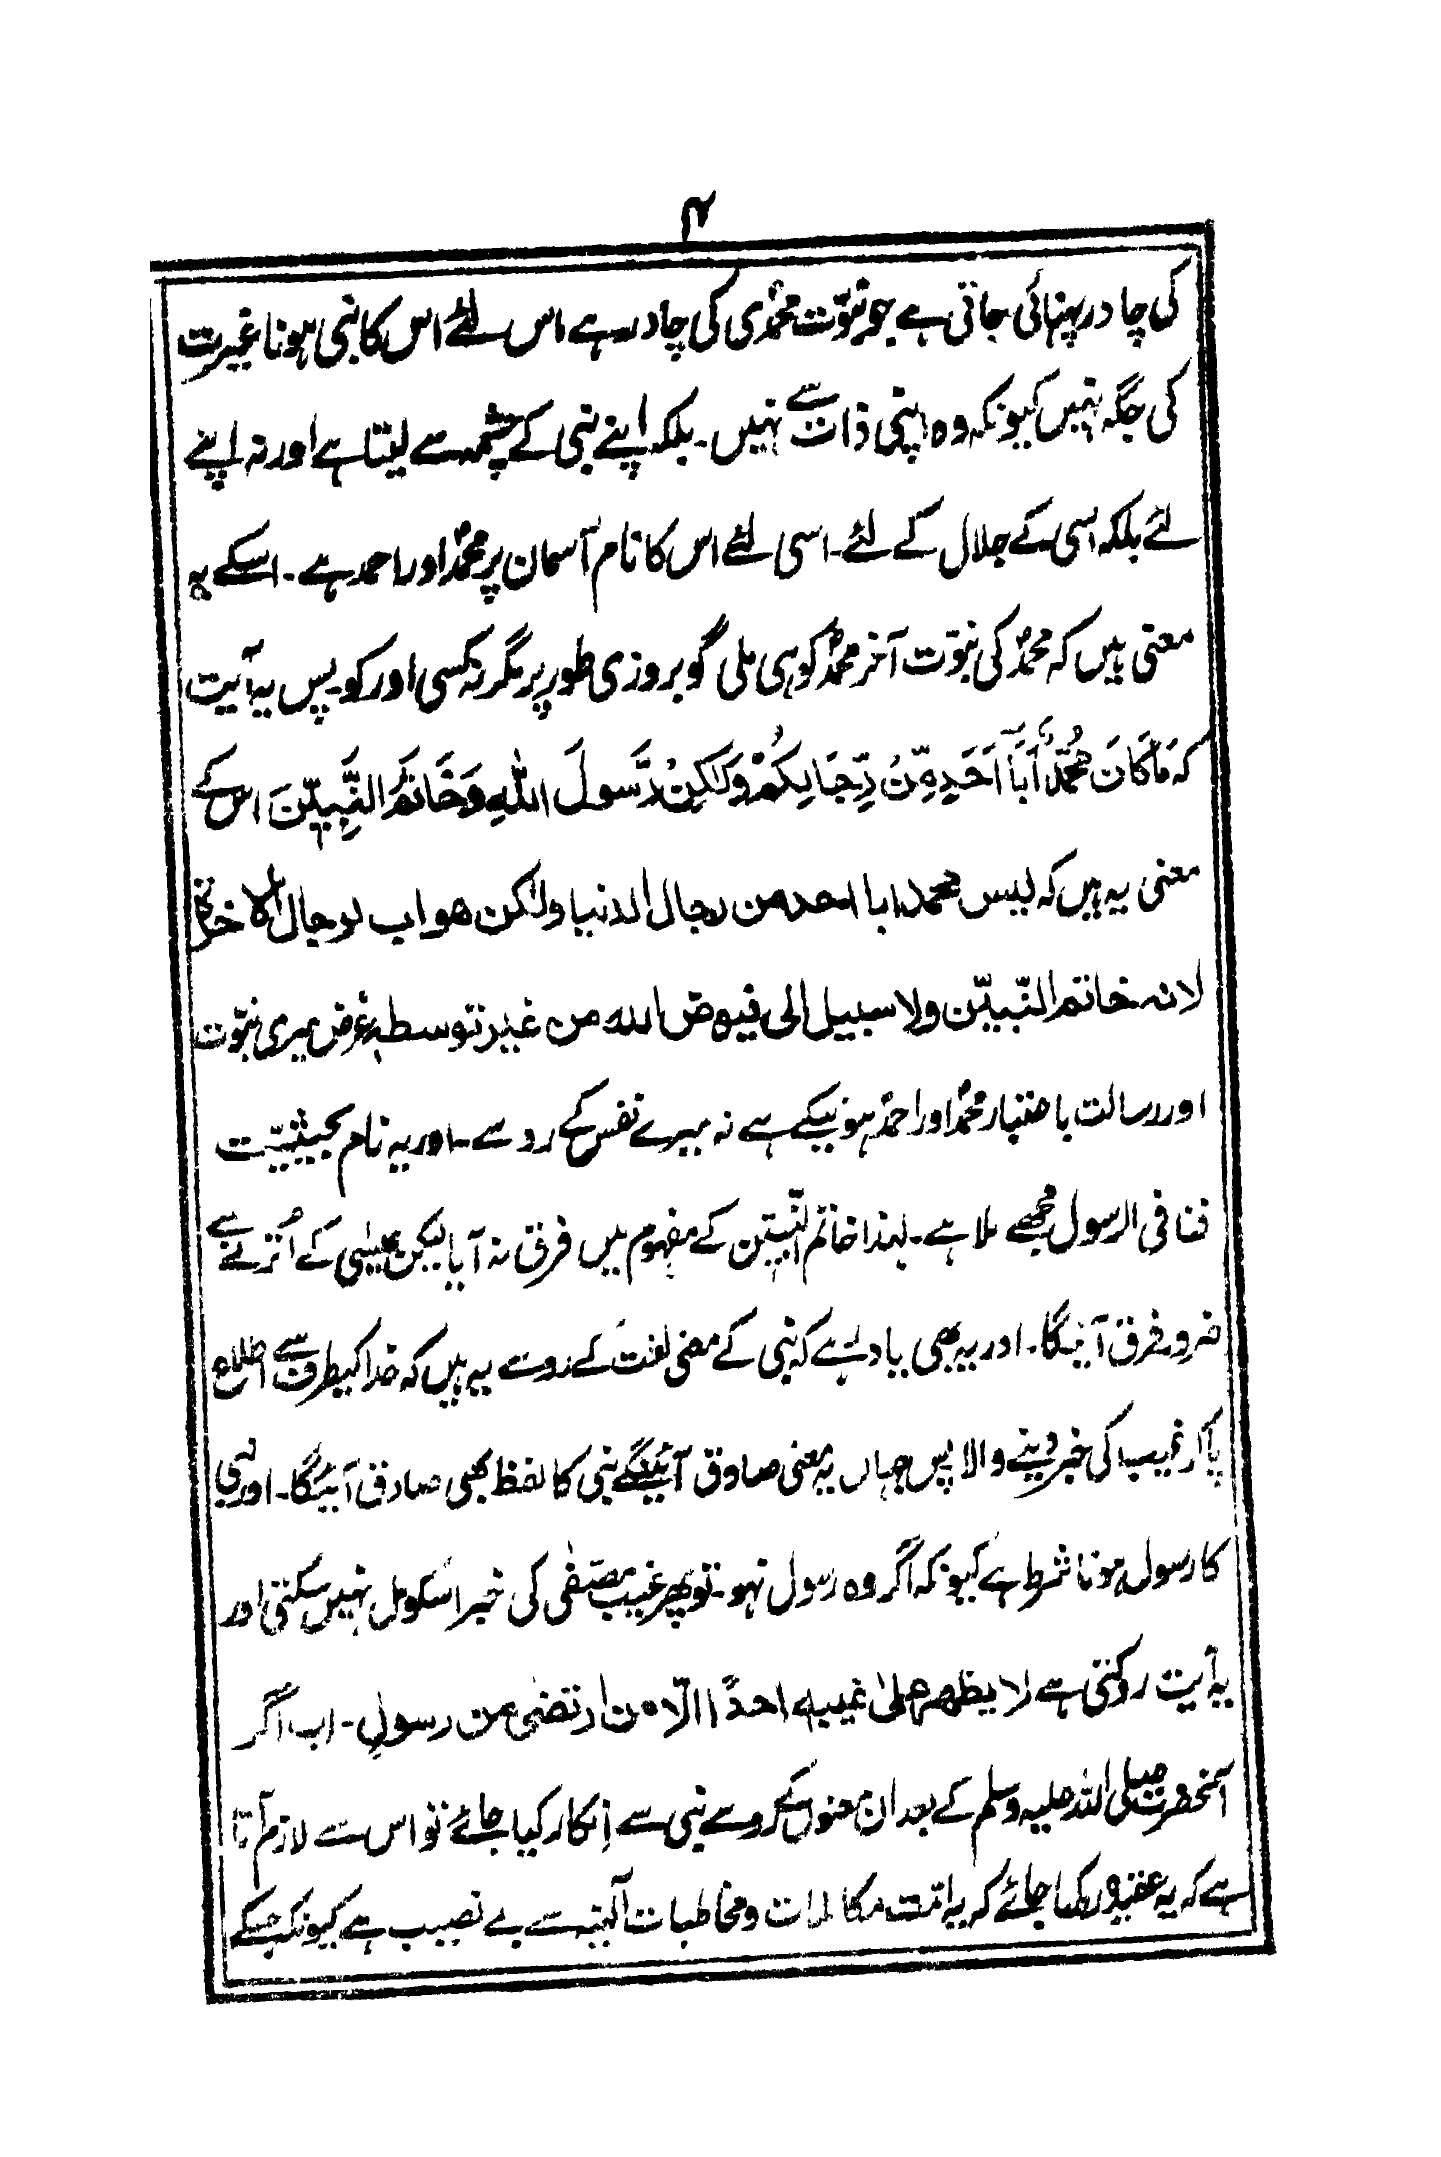 ۴
کی چادر پہنائی جاتی ہے جو نبوّت محمدؐی کی چادر ہے اس لئے اس کا نبی ہونا غیرت
کی جگہ نہیں کیونکہ وہ اپنی ذات سے نہیں۔ بلکہ اپنے نبی کے چشمہ سے لیتا ہے اور نہ اپنے
لئے بلکہ اسی کے جلال کے لئے۔ اسی لئے اس کا نام آسمان پر محمدؐ اور احمد ہے۔ اسکے یہ
معنی ہیں کہ محمدؐ کی نبوّت آخر محمدؐ کو ہی ملی گو بروزی طور پر مگر نہ کسی اور کو۔ پس یہ آیت
کہ مَا کَانَ مُحَمَّدٌ اَبَآ اَحَدٍ مِّنْ رِّجَالِکُمْ وَلٰکِنْ رَّسُولَ اللّٰهِ وَخَاتَمَ النَّبِیّٖنَ اس کے
معنی یہ ہیں کہ لیس محمد ابا احد من رجال الدنیا ولٰکن هو اب لرجال الاٰخرة
لانه خاتم النّبیّن ولا سبیل الی فیوض الله من غیر توسطه غرض میری نبوّت
اور رسالت باعتبار محمدؐ اور احمدؐ ہونیکے ہے نہ میرے نفس کے رو سے۔ اور یہ نام بحیثیّت
فنا فی الرسول مجھے ملا ہے۔ لہذا خاتم النّبیّن کے مفہوم میں فرق نہ آیا لیکن عیسٰی کے اُترنے سے
ضرور فرق آئیگا۔ اور یہ بھی یاد رہے کہ نبی کے معنی لغت کے رو سے یہ ہیں کہ خدا کیطرف سے اطلاع
پاکر غیب کی خبر دینے والا پس جہاں یہ معنی صادق آئینگے نبی کا لفظ بھی صادق آئیگا۔ اور نبی
کا رسول ہونا شرط ہے کیونکہ اگر وہ رسول نہو۔ تو پھر غیب مصفّٰی کی خبر اسکو مل نہیں سکتی اور
یہ آیت روکتی ہے لا یظهر علیٰ غیبه احدًا الّا من ارتضیٰ من رسول۔ اب اگر
آنحضرت صلی اللہ علیہ وسلم کے بعد ان معنوں کے رو سے نبی سے اِنکار کیا جائے تو اس سے لازم آتا
ہے کہ یہ عقیدہ رکھا جائے کہ یہ امّت مکالمات و مخاطبات آلہیہ سے بے نصیب ہے کیونکہ جسکے